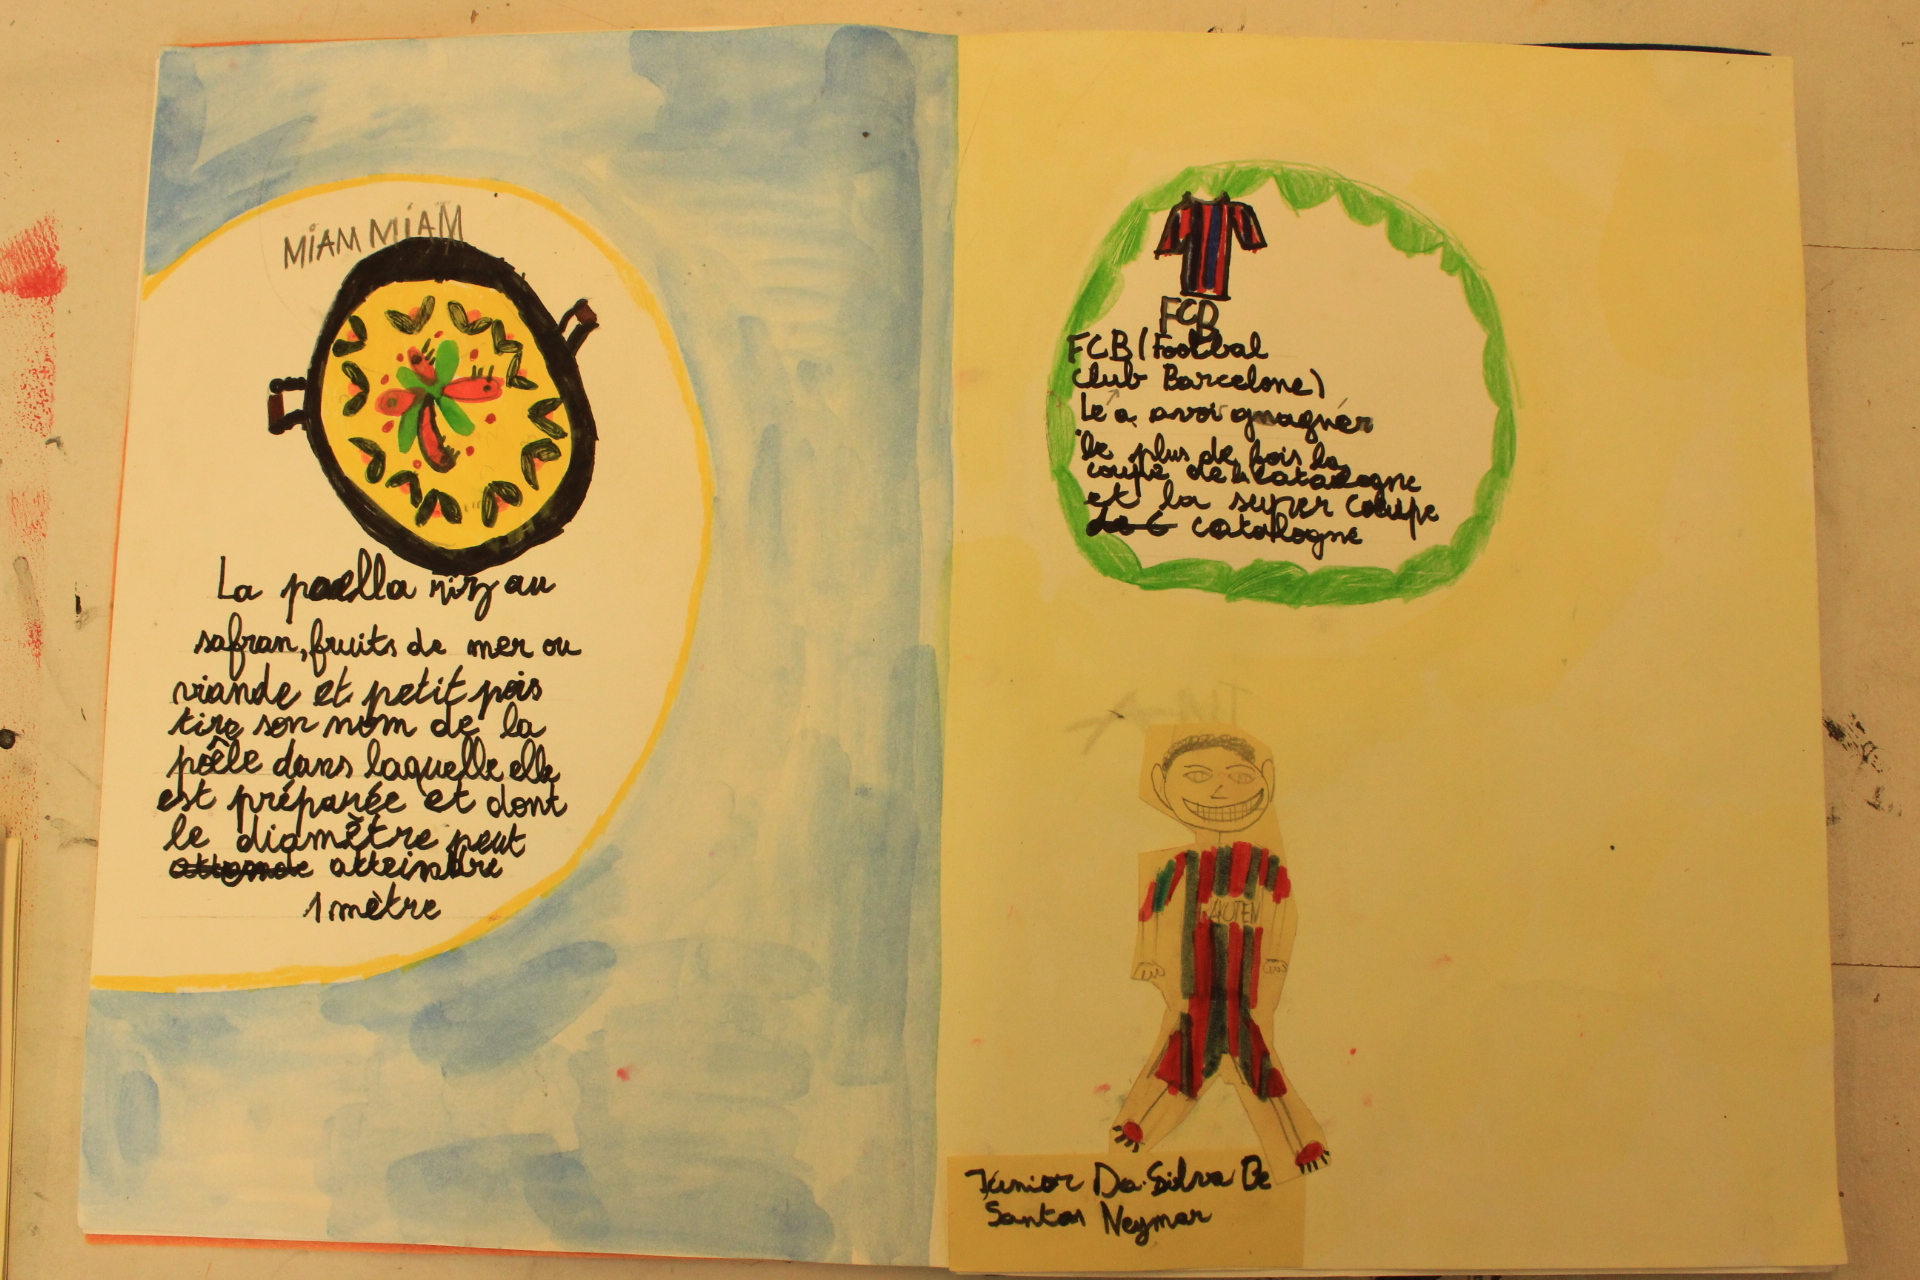 MiAM MiAM
La paella riz au
safran, fruits de mer ou
viande et petit pois
tire son nom de la
poêle dans laquelle elle
est préparée et dont
le diamètre peut
atteindre
1 mètre
FCB
FCB (Footbal
club Barcelone)
le a avoir gnagner
le plus de fois la
coupe de la catalogne
et la super coupe
catalogne
Junior Da Silva De
Santos Neymar